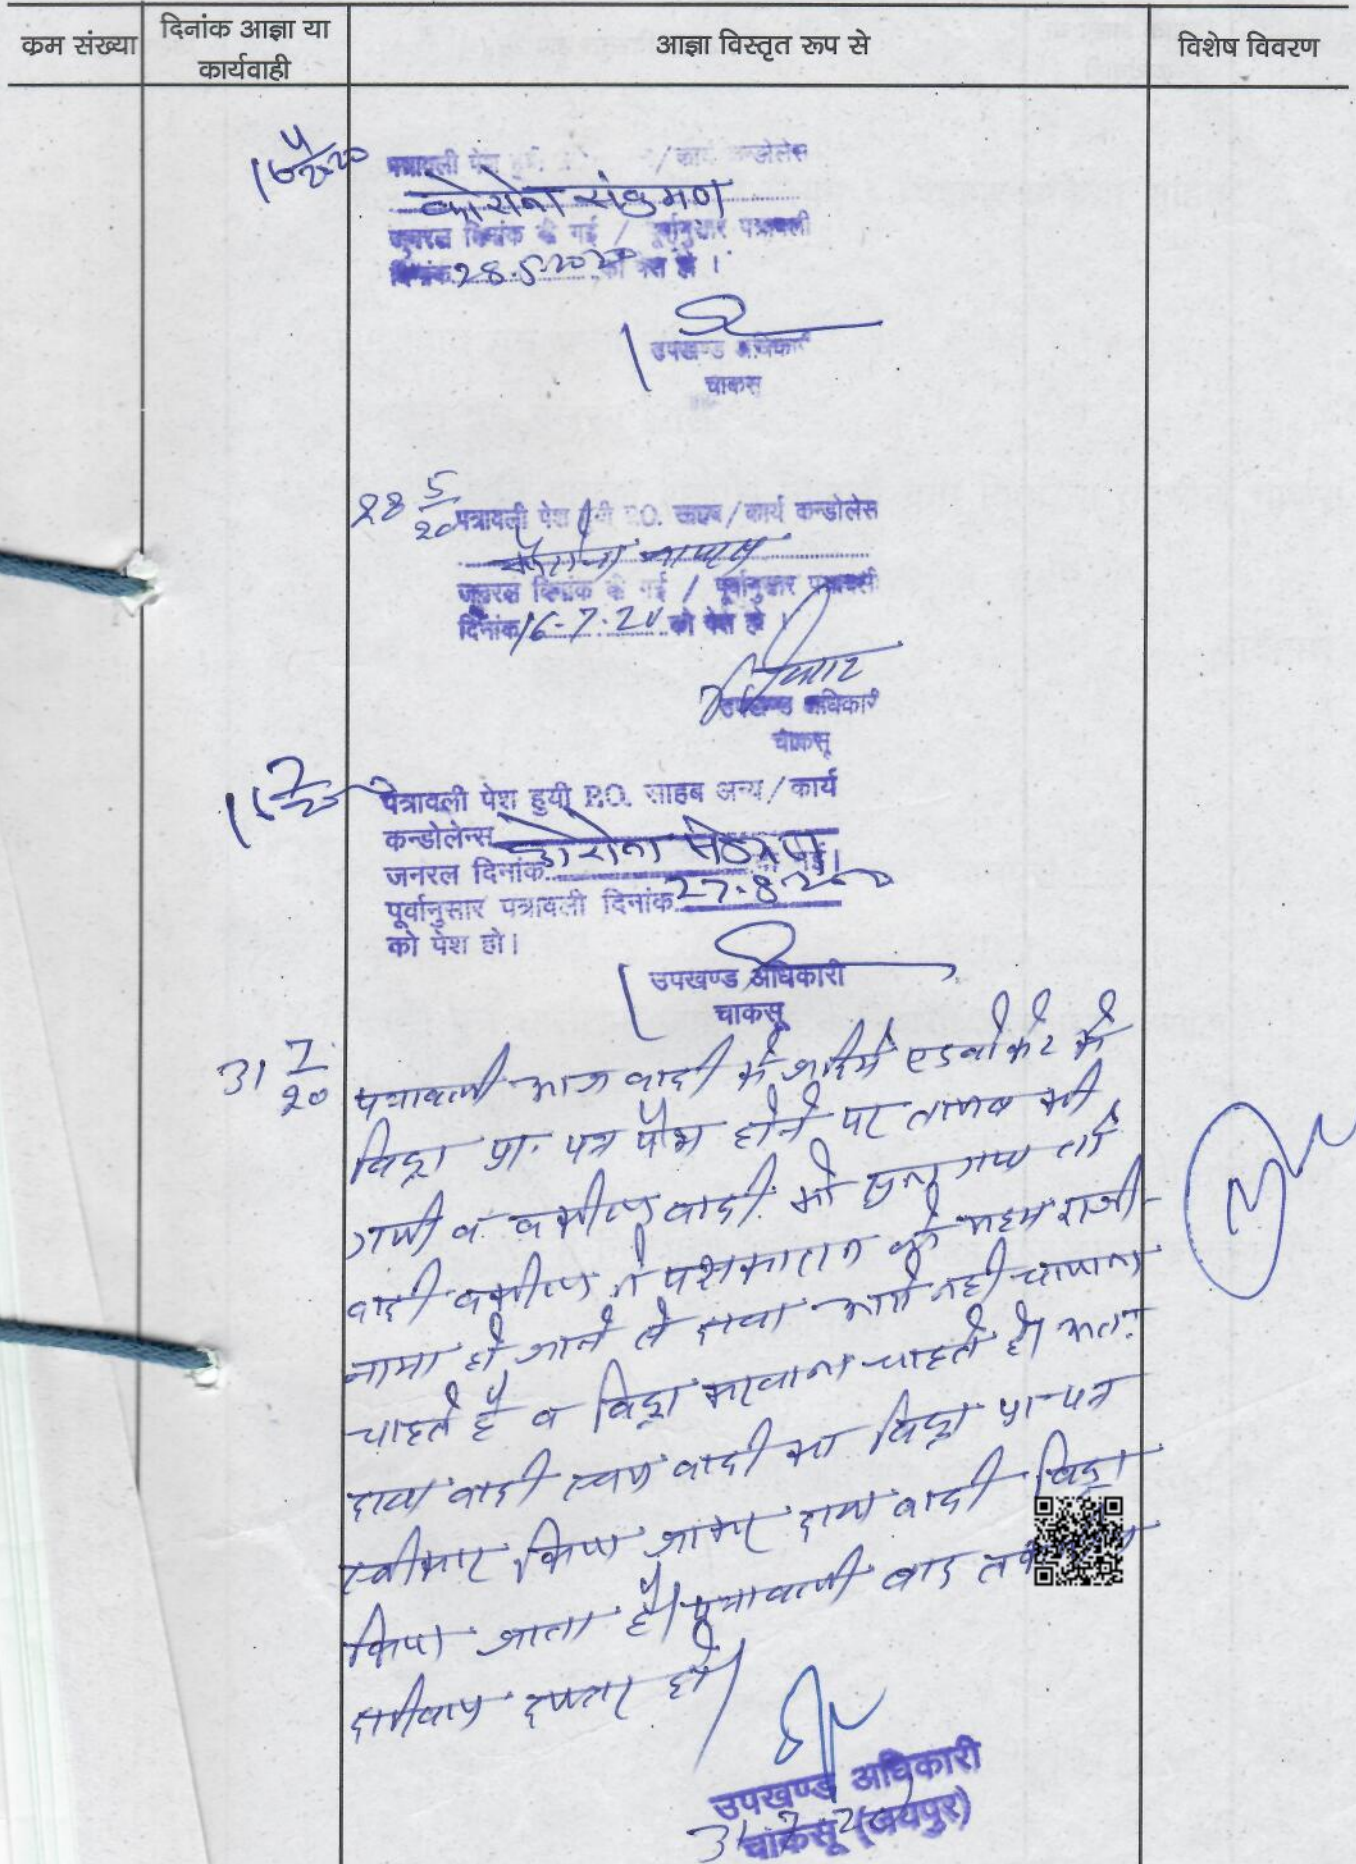 क्रम संख्या दिनांक आज्ञा या कार्यवाही आज्ञा विस्तृत रूप से विशेष विवरण
16 4/2020
पत्रावली पेश / कार्य कन्डोलेंस
कोरोना संक्रमण
जनरल दिनांक के गई / पूर्वानुसार पत्रावली
दिनांक 28.5.2020 को पेश हो ।
उपखण्ड अधिकारी
चाकसू
28 5/20
पत्रावली पेश हुयी P.O. साहब / कार्य कन्डोलेस
कोरोना वायरस
जनरल दिनांक के गई / पूर्वानुसार पत्रावली
दिनांक 16-7-20 को पेश हो ।
उपखण्ड अधिकारी
चाकसू
16 7/20
पत्रावली पेश हुयी P.O. साहब अन्य / कार्य
कन्डोलेन्स कोरोना संक्रमण
जनरल दिनांक की गई।
पूर्वानुसार पत्रावली दिनांक 27-8-2020
को पेश हो।
उपखण्ड अधिकारी
चाकसू
31 7/20
पत्रावली आज वादी के जरिये एडवोकेट के
विड्रा प्रा. पत्र पेश होने पर तलब की
गयी व वकील वादी को सुना गया तो
वादी वकील ने पक्षकारान के मध्य राजी-
नामा हो जाने से दावा आगे नही चलाना
चाहते है व विड्रा करवाना चाहते है। अतः
दावा वादी वादी का विड्रा प्रा-पत्र
स्वीकार किया जाकर दावा वादी विड्रा
किया जाता है। पत्रावली बाद
दाखिल दफ्तर हो।
उपखण्ड अधिकारी
चाकसू (जयपुर)
31-7-20